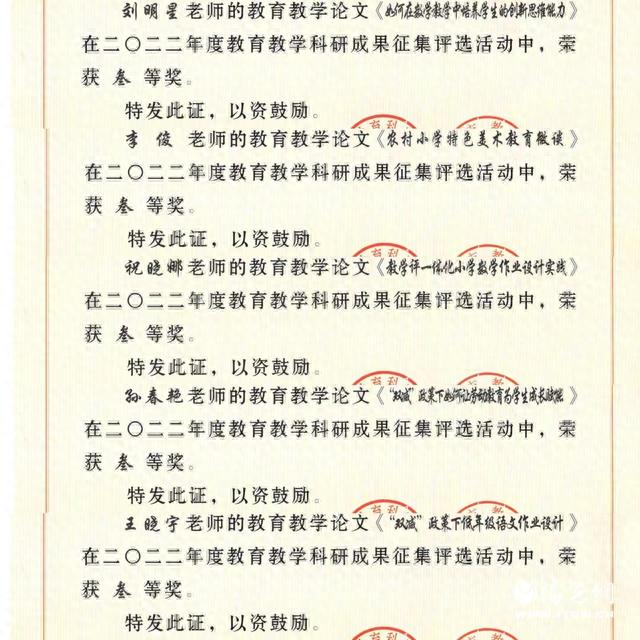 刘明星老师的教育教学论文《如何在数学教学中培养学生的创新思维能力》
在二〇二二年度教育教学科研成果征集评选活动中，荣
获 叁 等奖。
特发此证，以资鼓励。
李 俊 老师的教育教学论文《农村小学特色美术教育微谈》
在二〇二二年度教育教学科研成果征集评选活动中，荣
获 叁 等奖。
特发此证，以资鼓励。
祝晓娜老师的教育教学论文《教学评一体化小学数学作业设计实践》
在二〇二二年度教育教学科研成果征集评选活动中，荣
获 叁 等奖。
特发此证，以资鼓励。
孙春艳老师的教育教学论文《“双减”政策下如何让劳动教育为学生成长赋能》
在二〇二二年度教育教学科研成果征集评选活动中，荣
获 叁 等奖。
特发此证，以资鼓励。
王晓宇老师的教育教学论文《“双减”政策下低年级语文作业设计》
在二〇二二年度教育教学科研成果征集评选活动中，荣
获 叁 等奖。
特发此证，以资鼓励。